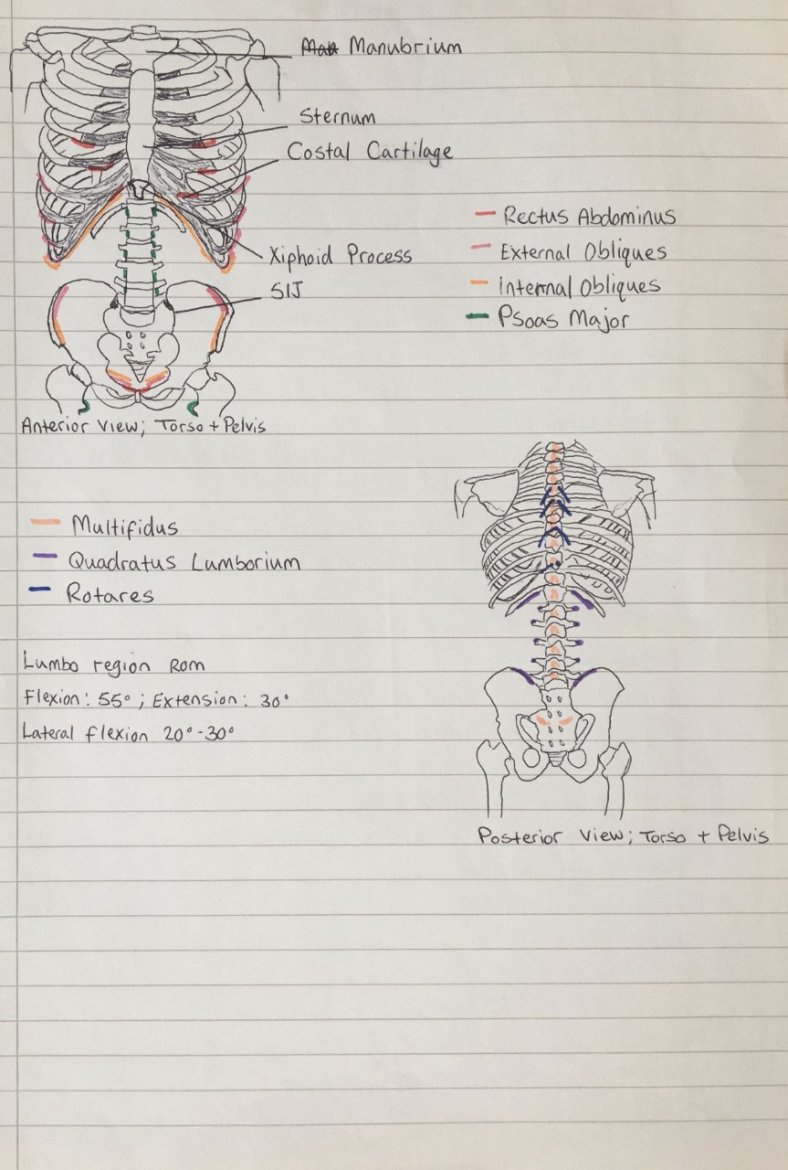 Manubrium
Sternum
Costal Cartilage
Xiphoid Process
SIJ
Rectus Abdominus
External Obliques
Internal Obliques
Psoas Major
Anterior View; Torso + Pelvis
Multifidus
Quadratus Lumborium
Rotares
Lumbo region ROM
Flexion: 55° ; Extension: 30°
Lateral flexion 20° - 30°
Posterior View; Torso + Pelvis